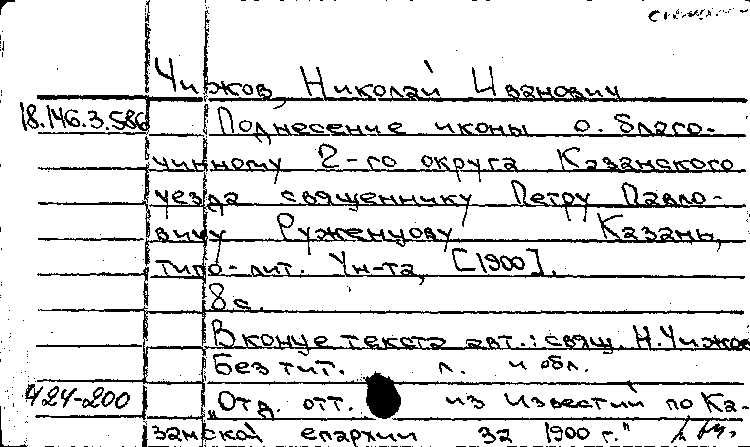 Чижов, Николай Иванович
18.146.3.586 Поднесение иконы о. благо-
чинному 2-го округа Казанского
уезда священнику Петру Павло-
вичу Руженцову Казань,
типо-лит. Ун-та, [1900].
8 с.
В конце текста авт.: свящ. Н. Чижов
Без тит. л. и обл.
424-200 "Отд. отт. из Известий по Ка-
занской епархии за 1900 г."